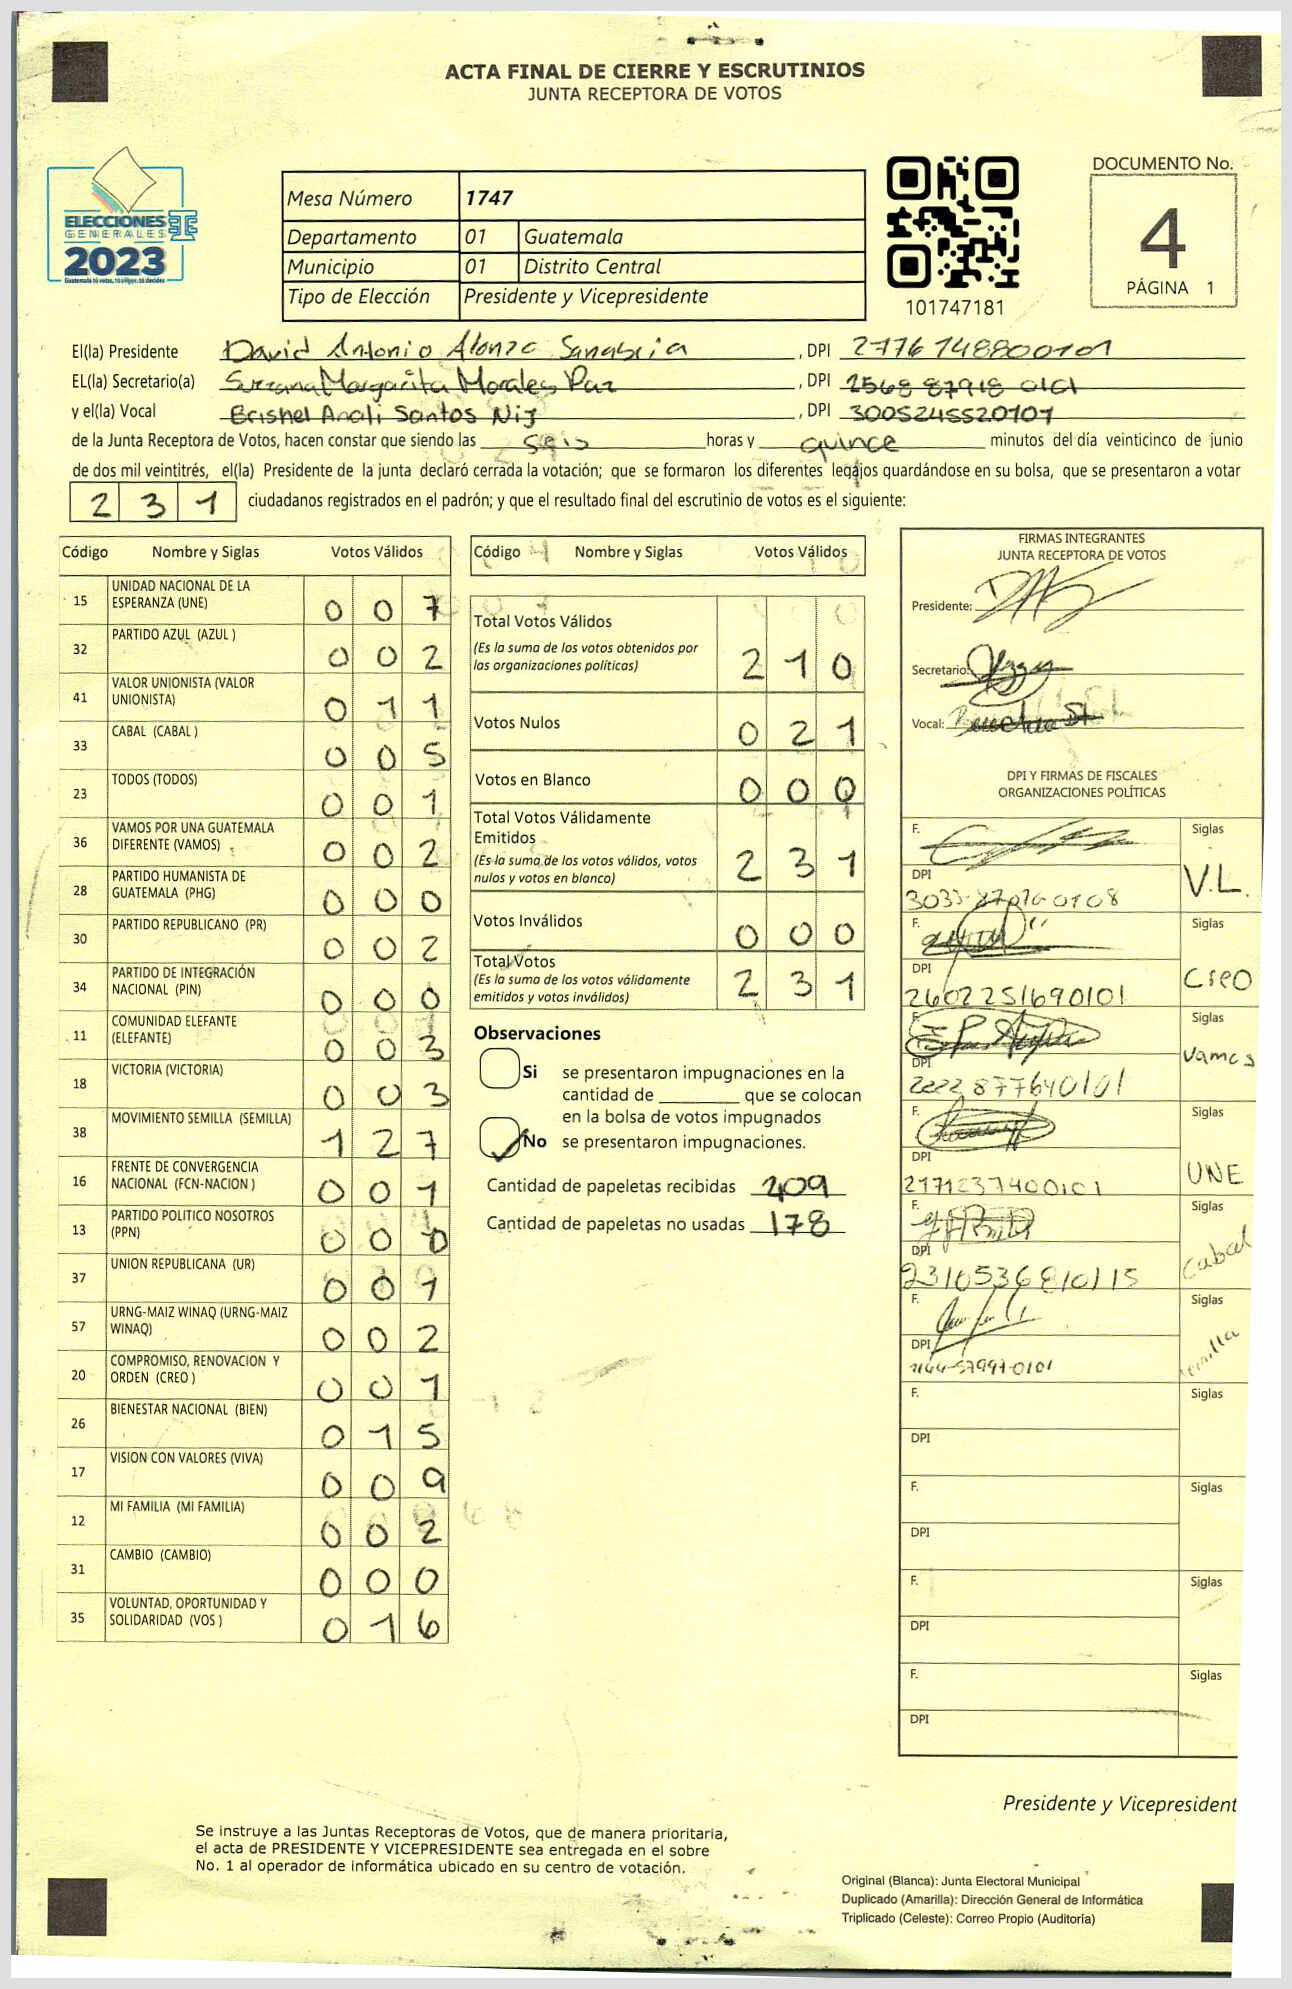 ACTA FINAL DE CIERRE Y ESCRUTINIOS
JUNTA RECEPTORA DE VOTOS
ELECCIONES
GENERALES
2023
Guatemala tú votas, tú eliges, tú decides
Mesa Número 1747
Departamento 01 Guatemala
Municipio 01 Distrito Central
Tipo de Elección Presidente y Vicepresidente
101747181
DOCUMENTO No.
4
PÁGINA 1
El(la) Presidente David Antonio Alonzo Sanabria , DPI 2776748800101
EL(la) Secretario(a) Suzana Margarita Morales Paz , DPI 2568 87918 0101
y el(la) Vocal Brishel Anali Santos Nij , DPI 3005245520101
de la Junta Receptora de Votos, hacen constar que siendo las seis horas y quince minutos del día veinticinco de junio
de dos mil veintitrés, el(la) Presidente de la junta declaró cerrada la votación; que se formaron los diferentes legajos guardándose en su bolsa, que se presentaron a votar
231 ciudadanos registrados en el padrón; y que el resultado final del escrutinio de votos es el siguiente:
Código Nombre y Siglas Votos Válidos
15 UNIDAD NACIONAL DE LA
ESPERANZA (UNE) 0 0 7
32 PARTIDO AZUL (AZUL ) 0 0 2
41 VALOR UNIONISTA (VALOR
UNIONISTA) 0 1 1
33 CABAL (CABAL ) 0 0 5
23 TODOS (TODOS) 0 0 1
36 VAMOS POR UNA GUATEMALA
DIFERENTE (VAMOS) 0 0 2
28 PARTIDO HUMANISTA DE
GUATEMALA (PHG) 0 0 0
30 PARTIDO REPUBLICANO (PR) 0 0 2
34 PARTIDO DE INTEGRACIÓN
NACIONAL (PIN) 0 0 0
11 COMUNIDAD ELEFANTE
(ELEFANTE) 0 0 3
18 VICTORIA (VICTORIA) 0 0 3
38 MOVIMIENTO SEMILLA (SEMILLA) 1 2 7
16 FRENTE DE CONVERGENCIA
NACIONAL (FCN-NACION ) 0 0 1
13 PARTIDO POLITICO NOSOTROS
(PPN) 0 0 0
37 UNION REPUBLICANA (UR) 0 0 1
57 URNG-MAIZ WINAQ (URNG-MAIZ
WINAQ) 0 0 2
20 COMPROMISO, RENOVACION Y
ORDEN (CREO ) 0 0 1
26 BIENESTAR NACIONAL (BIEN) 0 1 5
17 VISION CON VALORES (VIVA) 0 0 9
12 MI FAMILIA (MI FAMILIA) 0 0 2
31 CAMBIO (CAMBIO) 0 0 0
35 VOLUNTAD, OPORTUNIDAD Y
SOLIDARIDAD (VOS ) 0 1 6
Código Nombre y Siglas Votos Válidos
Total Votos Válidos
(Es la suma de los votos obtenidos por
las organizaciones políticas) 2 1 0
Votos Nulos 0 2 1
Votos en Blanco 0 0 0
Total Votos Válidamente
Emitidos
(Es la suma de los votos válidos, votos
nulos y votos en blanco) 2 3 1
Votos Inválidos 0 0 0
Total Votos
(Es la suma de los votos válidamente
emitidos y votos inválidos) 2 3 1
Observaciones
Si se presentaron impugnaciones en la
cantidad de ________ que se colocan
en la bolsa de votos impugnados
No se presentaron impugnaciones.
Cantidad de papeletas recibidas 409
Cantidad de papeletas no usadas 178
FIRMAS INTEGRANTES
JUNTA RECEPTORA DE VOTOS
Presidente:
Secretario:
Vocal:
DPI Y FIRMAS DE FISCALES
ORGANIZACIONES POLÍTICAS
F. Siglas
DPI V.L.
F. Siglas
DPI Creo
2602251690101
F. Siglas
DPI Vamos
2222877640101
F. Siglas
DPI UNE
2171237400101
F. Siglas
DPI Cabal
2310536810115
F. Siglas
DPI
F. Siglas
DPI
F. Siglas
DPI
F. Siglas
DPI
F. Siglas
DPI
Presidente y Vicepresident
Se instruye a las Juntas Receptoras de Votos, que de manera prioritaria,
el acta de PRESIDENTE Y VICEPRESIDENTE sea entregada en el sobre
No. 1 al operador de informática ubicado en su centro de votación.
Original (Blanca): Junta Electoral Municipal
Duplicado (Amarilla): Dirección General de Informática
Triplicado (Celeste): Correo Propio (Auditoría)